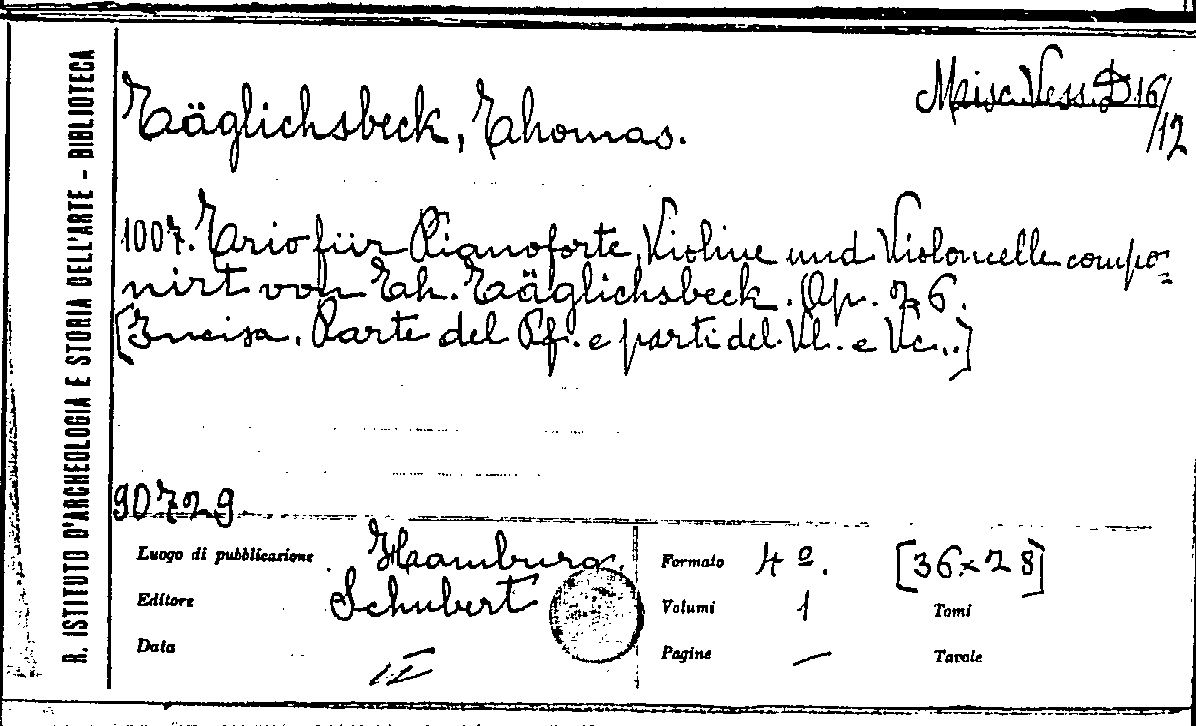 R. ISTITUTO D'ARCHEOLOGIA E STORIA DELL'ARTE - BIBLIOTECA
Misc. Vess. D 16/12
Täglichsbeck, Thomas.
1007. Trio für Pianoforte, Violine und Violoncelle compo=
nirt von Th. Täglichsbeck. Op. 26.
[Incisa. Parte del Pf. e parti del Vl. e Vc..]
90729
Luogo di pubblicazione Hamburg.
Editore Schubert
Data
Formato 4º. [36x28]
Volumi 1 Tomi
Pagine — Tavole